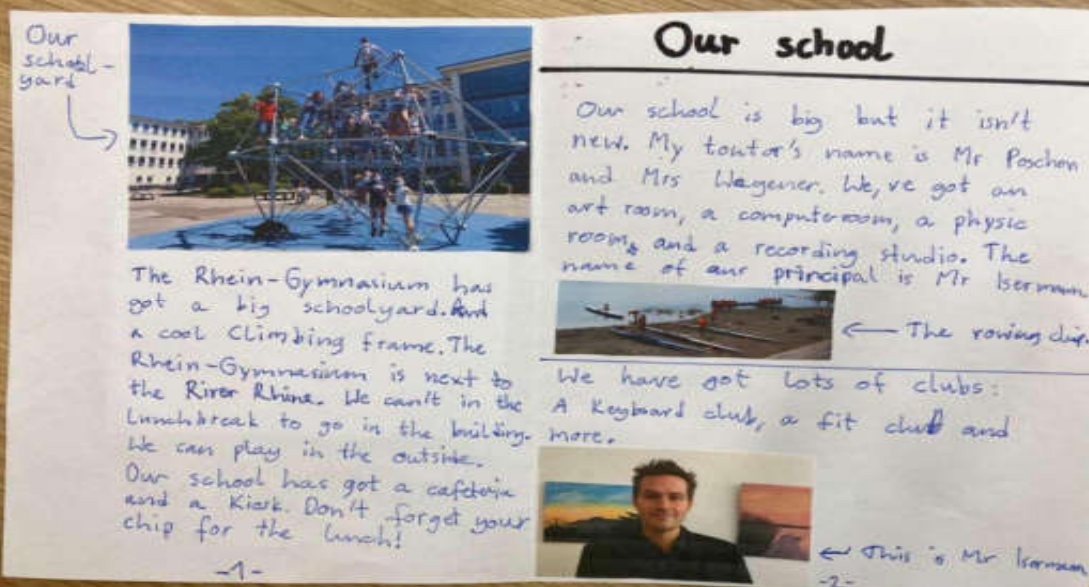 Our
school-
yard
The Rhein-Gymnasium has
got a big schoolyard. And
a cool Climbing frame. The
Rhein-Gymnasium is next to
the River Rhine. We can't in the
Lunchbreak to go in the building.
We can play in the outside.
Our school has got a cafeteria
and a Kiosk. Don't forget your
chip for the lunch!
-1-
Our school
Our school is big but it isn't
new. My toutor's name is Mr Poschen
and Mrs Wagener. We,ve got an
art room, a computeroom, a physic
room, and a recording studio. The
name of our principal is Mr Isermann
← The rowing club
We have got lots of clubs:
A Keyboard club, a fit club and
more.
← This is Mr Isermann
-2-